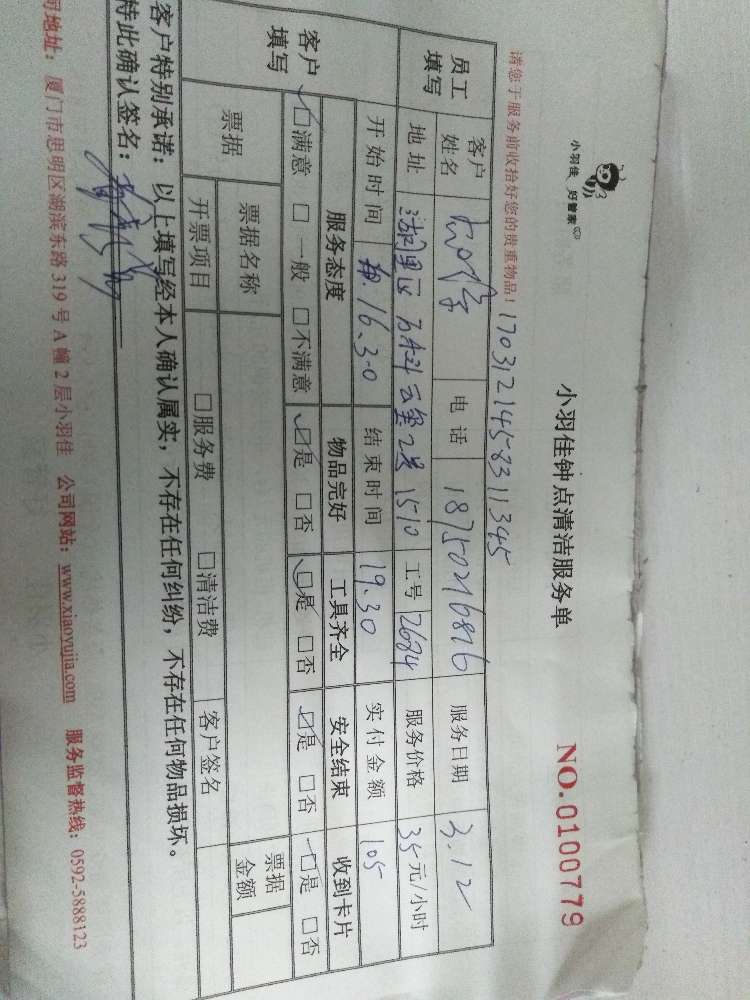 小羽佳 好管家
小羽佳钟点清洁服务单
NO.0100779
请您于服务前收拾好您的贵重物品! 1703121458311345
员工填写 客户姓名 电话 18750216816 服务日期 3.12
地址 湖里区万科云玺2号1510 工号 2684 服务价格 35元/小时
开始时间 16.30 结束时间 19.30 实付金额 105
客户填写 服务态度 物品完好 工具齐全 安全结束 收到卡片
☑满意 □一般 □不满意 ☑是 □否 ☑是 □否 ☑是 □否 ☑是 □否
票据 票据名称 票据金额
开票项目 □服务费 □清洁费 客户签名
客户特别承诺:以上填写经本人确认属实,不存在任何纠纷,不存在任何物品损坏。
特此确认签名:
司地址:厦门市思明区湖滨东路319号A幢2层小羽佳 公司网站:www.xiaoyujia.com 服务监督热线:0592-5888123